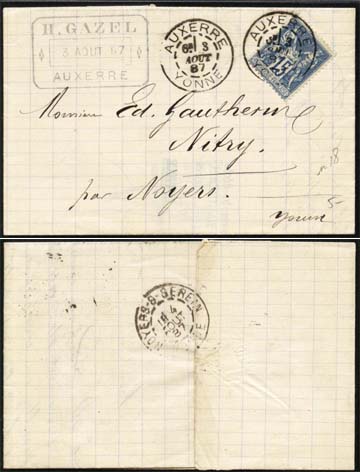 H. GAZEL
3 AOUT 87
AUXERRE
AUXERRE
3
AOUT
87
YONNE
AUXERRE
15
Monsieur Ed. Gautherin
Nitry.
par Noyers.
Yonne
NOYERS-S-SEREIN
4
AOUT
87